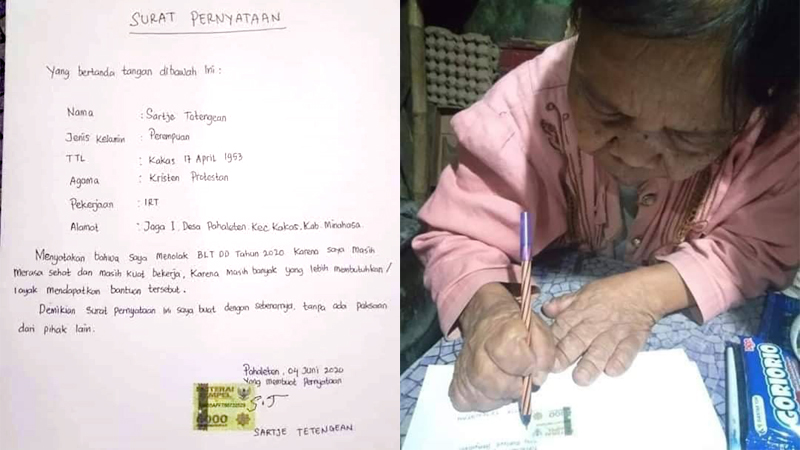 SURAT PERNYATAAN
Yang bertanda tangan dibawah Ini :
Nama : Sartje Tetengean
Jenis Kelamin : Perempuan
TTL : Kakas 17 April 1953
Agama : Kristen Protestan
Pekerjaan : IRT
Alamat : Jaga I. Desa Pahaleten. Kec Kakas. Kab. Minahasa.
Menyatakan bahwa saya Menolak BLT DD Tahun 2020 Karena saya Masih
Merasa sehat dan masih kuat bekerja, Karena Masih banyak yang lebih membutuhkan /
layak mendapatkan bantuan tersebut.
Demikian Surat pernyataan Ini saya buat dengan sebenarnya, tanpa ada paksaan
dari pihak lain.
Pahaleten, 04 Juni 2020
Yang membuat Pernyataan
METERAI
TEMPEL
6000
S.T
SARTJE TETENGEAN
6000
GORIORIO